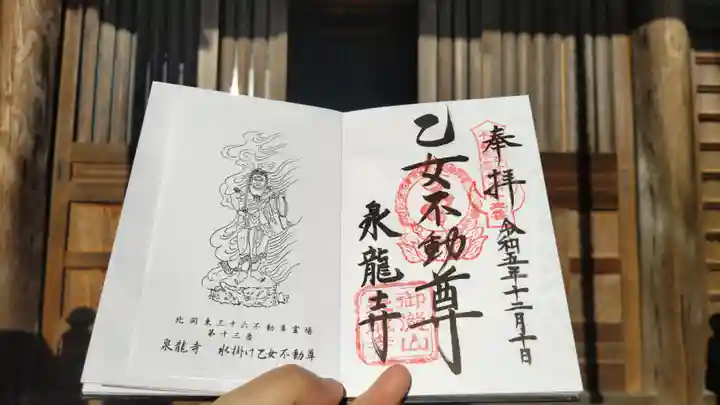 奉拝
令和五年十二月十日
乙女不動尊
泉龍寺
御瀧山
北関東三十六不動尊霊場
第十三番
泉龍寺 水掛け乙女不動尊